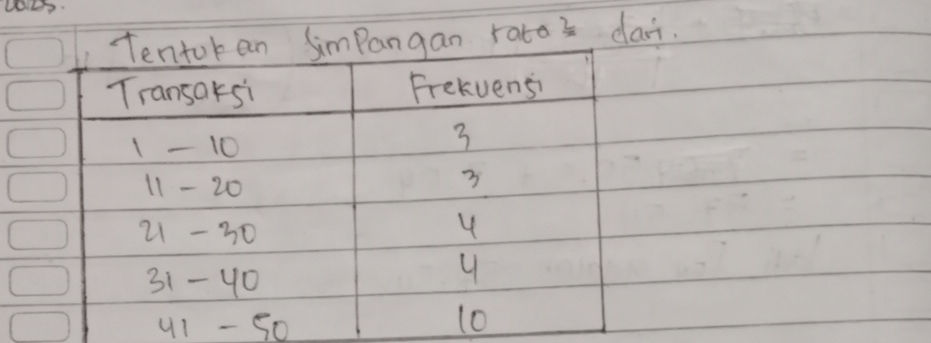 Tentukan Simpangan rata² dari.
Transaksi Frekuensi
1 - 10 3
11 - 20 3
21 - 30 4
31 - 40 4
41 - 50 10